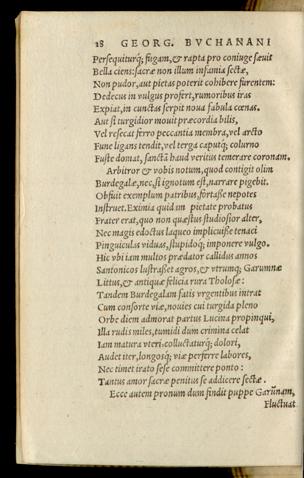 28 GEORG. BVCHANANI
Persequiturq; fugam, & rapta pro coniuge sæuit
Bella ciens: sacræ non illum infamia sectæ,
Non pudor, aut pietas poterit cohibere furentem:
Dedecus in vulgus profert, rumoribus iras
Expiat, in cunctas serpit noua fabula cœnas.
Aut si turgidior mouit præcordia bilis,
Vel resecat ferro peccantia membra, vel arcto
Fune ligans tendit, vel terga caputq; colurno
Fuste domat, sanctã haud veritus temerare coronam.
Arbitror & vobis notum, quod contigit olim
Burdegalæ, nec, si ignotum est, narrare pigebit.
Obfuit exemplum patribus, fortaße nepotes
Instruet. Eximia quidam pietate probatus
Frater erat, quo non quæstus studiosior alter,
Nec magis edoctus laqueo implicuiße tenaci
Pinguiculas viduas, stupidoq; imponere vulgo.
Hic vbi iam multos prædator callidus annos
Santonicos lustraßet agros, & vtrumq; Garumnæ
Littus, & antiquæ felicia rura Tholosæ:
Tandem Burdegalam fatis vrgentibus intrat
Cum consorte viæ, nouies cui turgida pleno
Orbe diem admorat partus Lucina propinqui,
Illa rudis miles, tumidi dum crimina celat
Iam matura vteri: colluctaturq; dolori,
Audet iter, longosq; viæ perferre labores,
Nec timet irato sese committere ponto:
Tantus amor sacræ penitus se addicere sectæ.
Ecce autem pronum dum findit puppe Garũnam,
Fluctuat